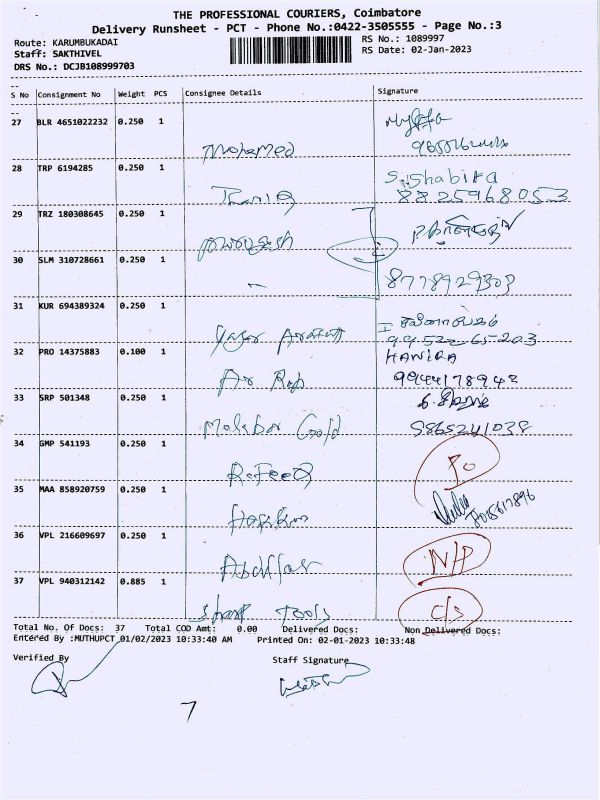 THE PROFESSIONAL COURIERS, Coimbatore
Delivery Runsheet - PCT - Phone No.:0422-3505555 - Page No.:3
Route: KARUMBUKADAI
RS No.: 1089997
Staff: SAKTHIVEL
RS Date: 02-Jan-2023
DRS No.: DCJB108999703
S No Consignment No Weight PCS Consignee Details Signature
27 BLR 4651022232 0.250 1
Mohamed
28 TRP 6194285 0.250 1 S.Shabira
Tariq 8825968053
29 TRZ 180308645 0.250 1
30 SLM 310728661 0.250 1
8778929303
31 KUR 694389324 0.250 1
Yasar Arafath 9952265203
32 PRO 14375883 0.100 1 HANIRA
Air Rep 9944178942
33 SRP 501348 0.250 1
Malabar Gold 9865241038
34 GMP 541193 0.250 1
RaFeeQ
35 MAA 858920759 0.250 1
36 VPL 216609697 0.250 1 N/P
37 VPL 940312142 0.885 1 C/S
Sharp Tools
Total No. Of Docs: 37 Total COD Amt: 0.00 Delivered Docs: Non Delivered Docs:
Entered By :MUTHUPCT 01/02/2023 10:33:40 AM Printed On: 02-01-2023 10:33:48
Verified By Staff Signature
7